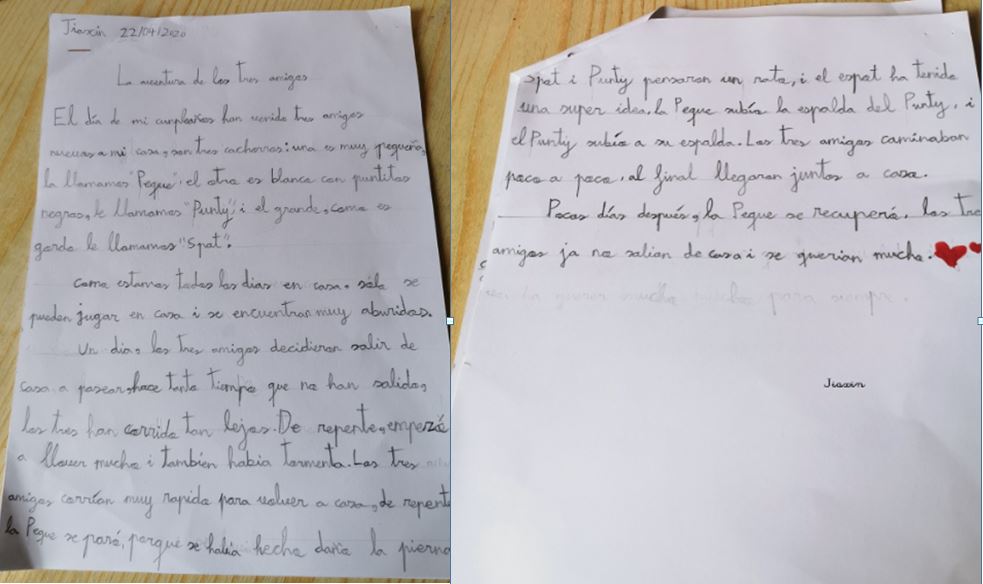 Jiaxin 22/04/2020
La aventura de los tres amigos
El día de mi cumpleaños han venido tres amigos
nuevos a mi casa, son tres cachorros: una es muy pequeña,
la llamamos "Peque", el otro es blanco con puntitos
negros, le llamamos "Punty", i el grande, como es
gordo le llamamos "Spot".
Como estamos todos los dias en casa. sólo se
pueden jugar en casa i se encuentran muy aburidos.
Un dia, los tres amigos decidieron salir de
casa a pasear, hace tanto tiempo que no han salido,
los tres han corrido tan lejos. De repente, empezó
a llover mucho i tambien habia tormenta. Los tres
amigos corrían muy rapido para volver a casa, de repente
la Peque se paró, porque se habia hecho daño la pierna
spot i Punty pensaron un rato, i el espot ha tenido
una super idea, la Peque subía la espalda del Punty, i
el Punty subía a su espalda. Los tres amigos caminaban
poco a poco, al final llegaron juntos a casa.
Pocos días después, la Peque se recuperó. los tre
amigos ja no salian de casa i se querian mucho.
querer mucho mucho para siempre.
Jiaxin